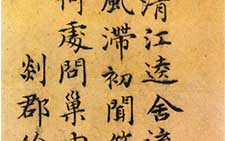 清江遶舍
風滯初聞
何處問巢
剡郡